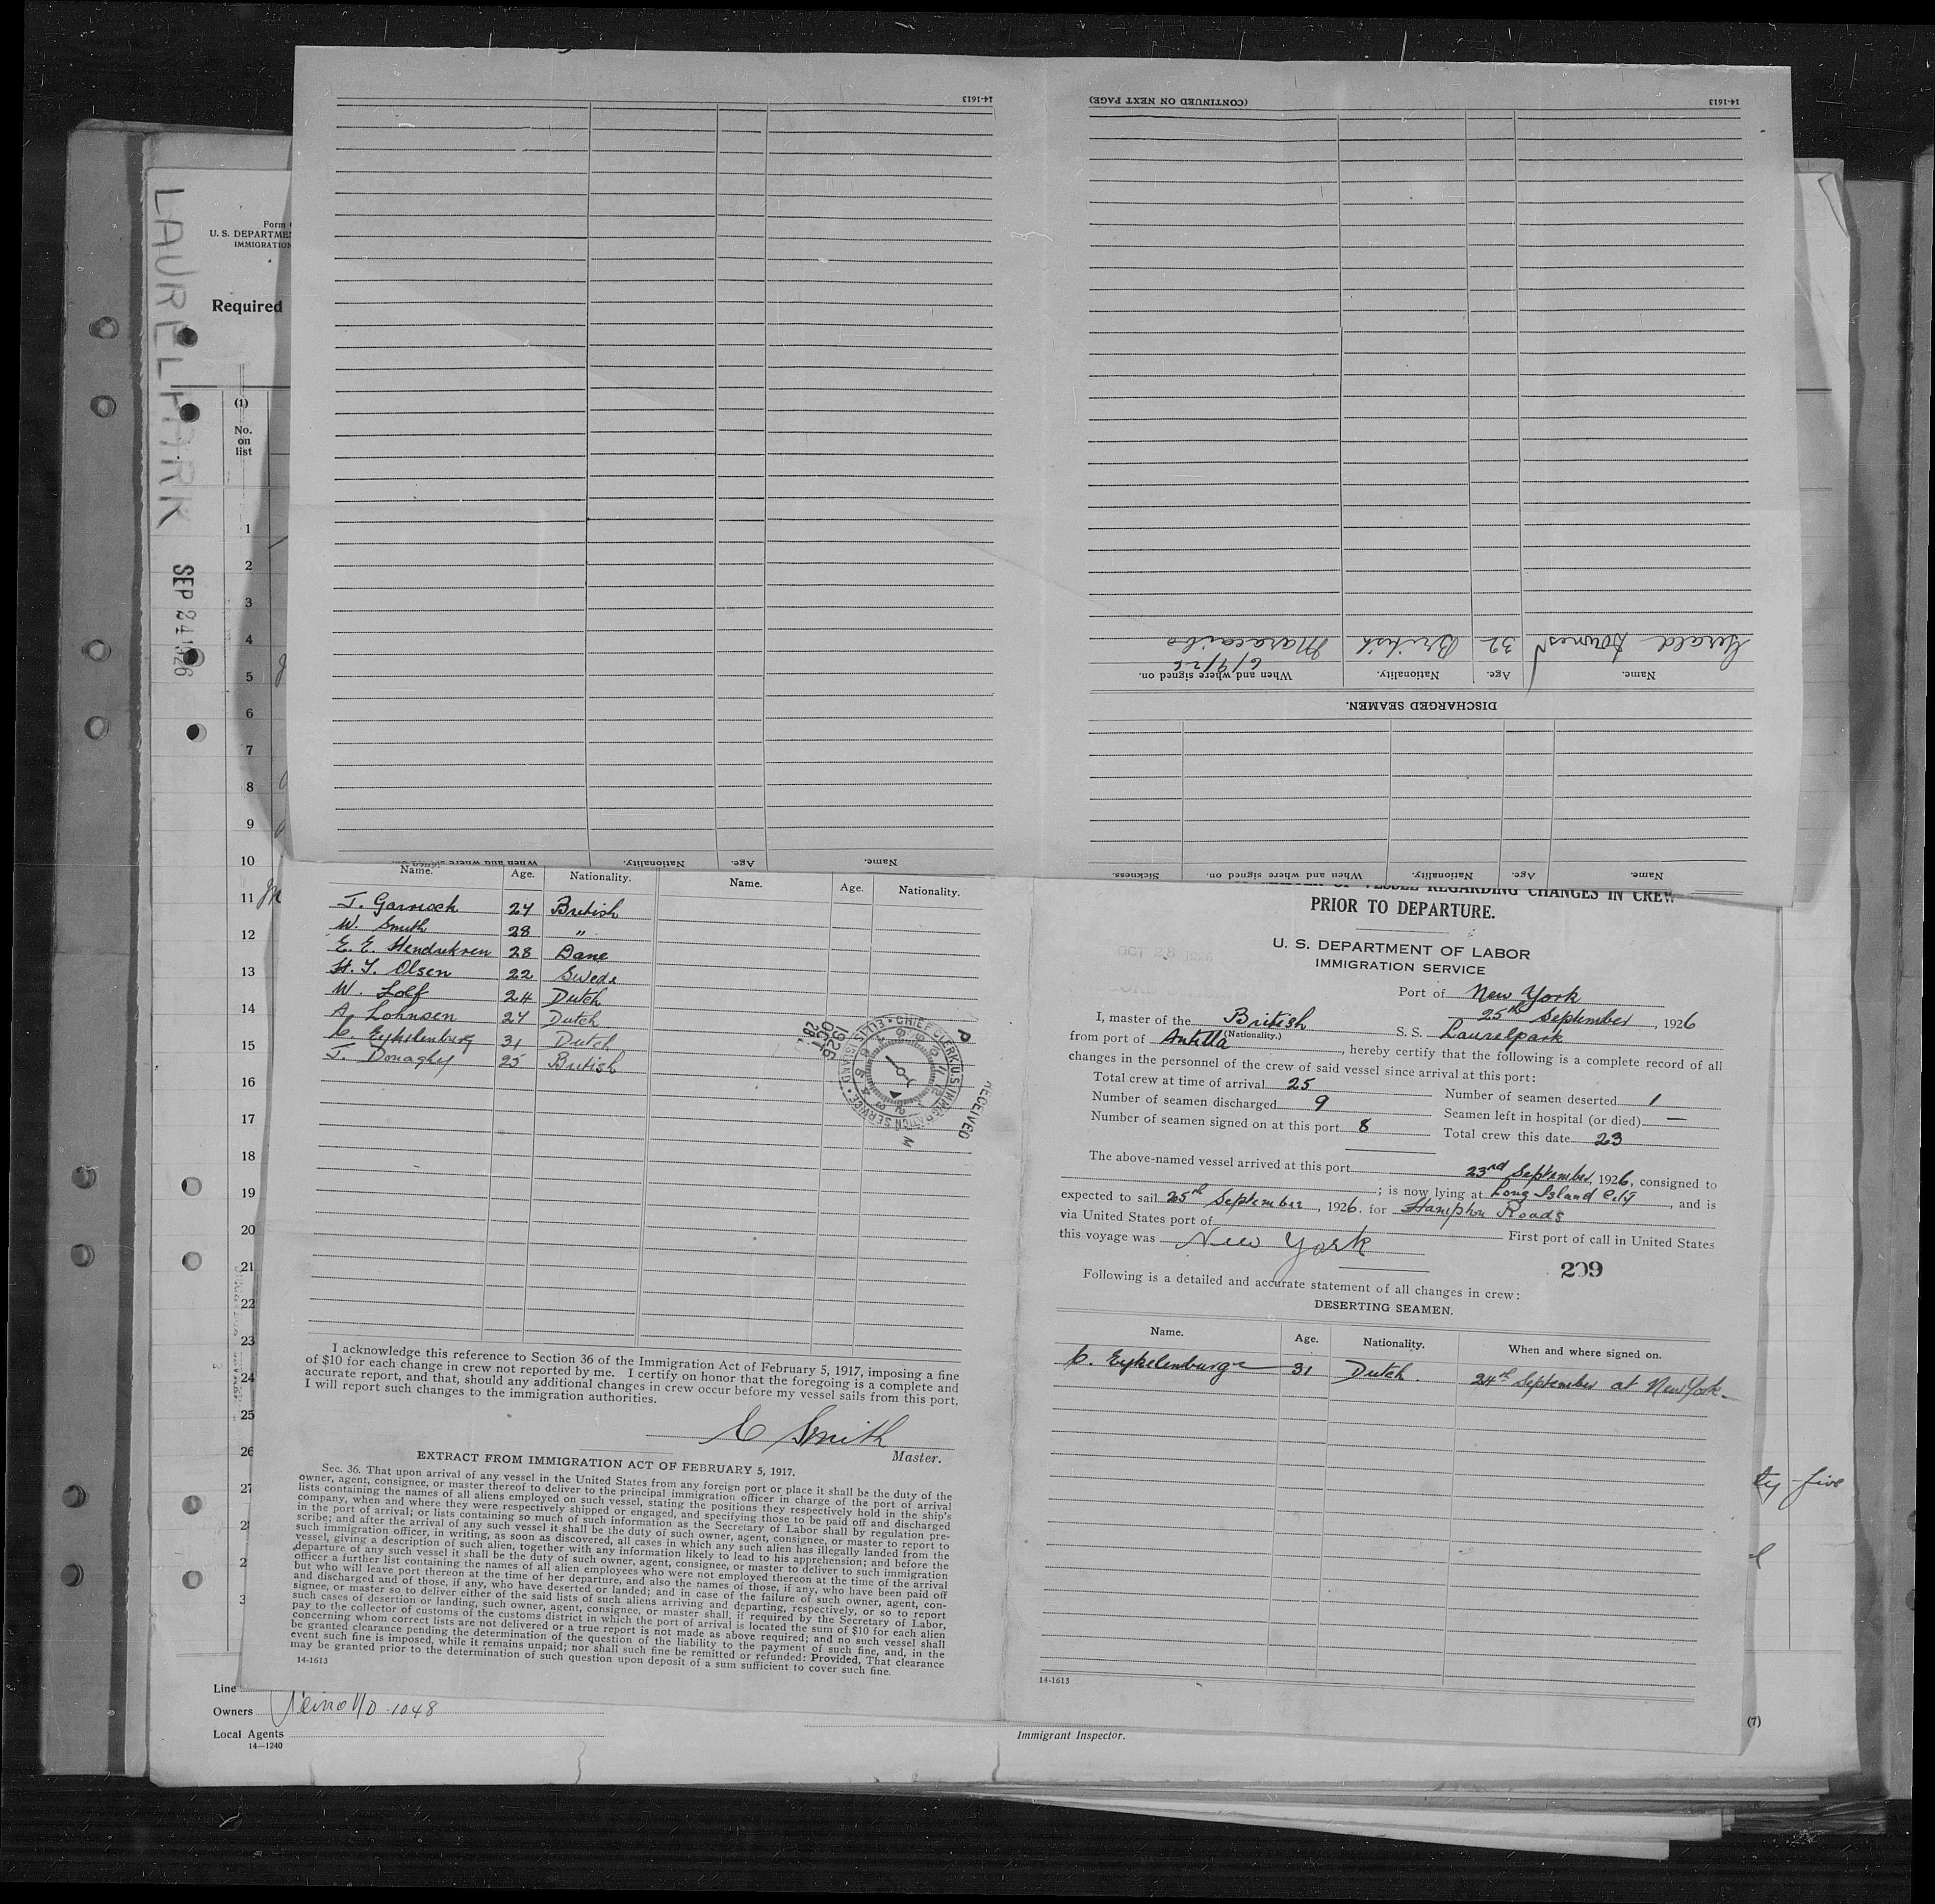 14-1613
(CONTINUED ON NEXT PAGE)
14-1613
Gerald Downes 32 British Maracaibo
6/9/26
Name. Age. Nationality. When and where signed on.
DISCHARGED SEAMEN.
Name. Age. Nationality. When and where signed on. Sickness.
Name. Age. Nationality. When and where signed on.
LAURELPARK
SEP 24 1926
Form
U. S. DEPARTME
IMMIGRATION
Required
(1)
No.
on
list
1
2
3
4
5
6
7
8
9
10
11
12
13
14
15
16
17
18
19
20
21
22
23
24
25
26
27
2
2
3
Name. Age. Nationality. Name. Age. Nationality.
J. Garnock 24 British
W. Smith 28 "
E. E. Hendriksen 28 Dane
H. Y. Olsen 22 Swede
W. Lolf 24 Dutch
A. Lohnsen 24 Dutch
C. Eykelenburg 31 Dutch
J. Donaghy 25 British
RECEIVED
1926 OCT 28
CHIEF CLERK U.S. IMMIGRATION SERVICE • ELLIS ISLAND •
I acknowledge this reference to Section 36 of the Immigration Act of February 5, 1917, imposing a fine
of $10 for each change in crew not reported by me. I certify on honor that the foregoing is a complete and
accurate report, and that, should any additional changes in crew occur before my vessel sails from this port,
I will report such changes to the immigration authorities.
C Smith
Master.
EXTRACT FROM IMMIGRATION ACT OF FEBRUARY 5, 1917.
Sec. 36. That upon arrival of any vessel in the United States from any foreign port or place it shall be the duty of the
owner, agent, consignee, or master thereof to deliver to the principal immigration officer in charge of the port of arrival
lists containing the names of all aliens employed on such vessel, stating the positions they respectively hold in the ship's
company, when and where they were respectively shipped or engaged, and specifying those to be paid off and discharged
in the port of arrival; or lists containing so much of such information as the Secretary of Labor shall by regulation pre-
scribe; and after the arrival of any such vessel it shall be the duty of such owner, agent, consignee, or master to report to
such immigration officer, in writing, as soon as discovered, all cases in which any such alien has illegally landed from the
vessel, giving a description of such alien, together with any information likely to lead to his apprehension; and before the
departure of any such vessel it shall be the duty of such owner, agent, consignee, or master to deliver to such immigration
officer a further list containing the names of all alien employees who were not employed thereon at the time of the arrival
but who will leave port thereon at the time of her departure, and also the names of those, if any, who have been paid off
and discharged and of those, if any, who have deserted or landed; and in case of the failure of such owner, agent, con-
signee, or master so to deliver either of the said lists of such aliens arriving and departing, respectively, or so to report
such cases of desertion or landing, such owner, agent, consignee, or master shall, if required by the Secretary of Labor,
pay to the collector of customs of the customs district in which the port of arrival is located the sum of $10 for each alien
concerning whom correct lists are not delivered or a true report is not made as above required; and no such vessel shall
be granted clearance pending the determination of the question of the liability to the payment of such fine, and, in the
event such fine is imposed, while it remains unpaid; nor shall such fine be remitted or refunded: Provided, That clearance
may be granted prior to the determination of such question upon deposit of a sum sufficient to cover such fine.
14-1613
VESSEL REGARDING CHANGES IN CREW
PRIOR TO DEPARTURE.
U. S. DEPARTMENT OF LABOR
IMMIGRATION SERVICE
Port of New York
25th September, 1926
I, master of the British S. S. Laurelpark
(Nationality.)
from port of Antilla, hereby certify that the following is a complete record of all
changes in the personnel of the crew of said vessel since arrival at this port:
Total crew at time of arrival 25 Number of seamen deserted 1
Number of seamen discharged 9 Seamen left in hospital (or died) —
Number of seamen signed on at this port 8 Total crew this date 23
The above-named vessel arrived at this port 23rd September, 1926, consigned to
; is now lying at Long Island City, and is
expected to sail 25th September, 1926. for Hampton Roads
via United States port of First port of call in United States
this voyage was New York
209
Following is a detailed and accurate statement of all changes in crew:
DESERTING SEAMEN.
Name. Age. Nationality. When and where signed on.
C. Eykelenburg 31 Dutch. 24th September at New York
14-1613
ty-five
Line
Owners 1048
Local Agents
14—1240
Immigrant Inspector.
(7)